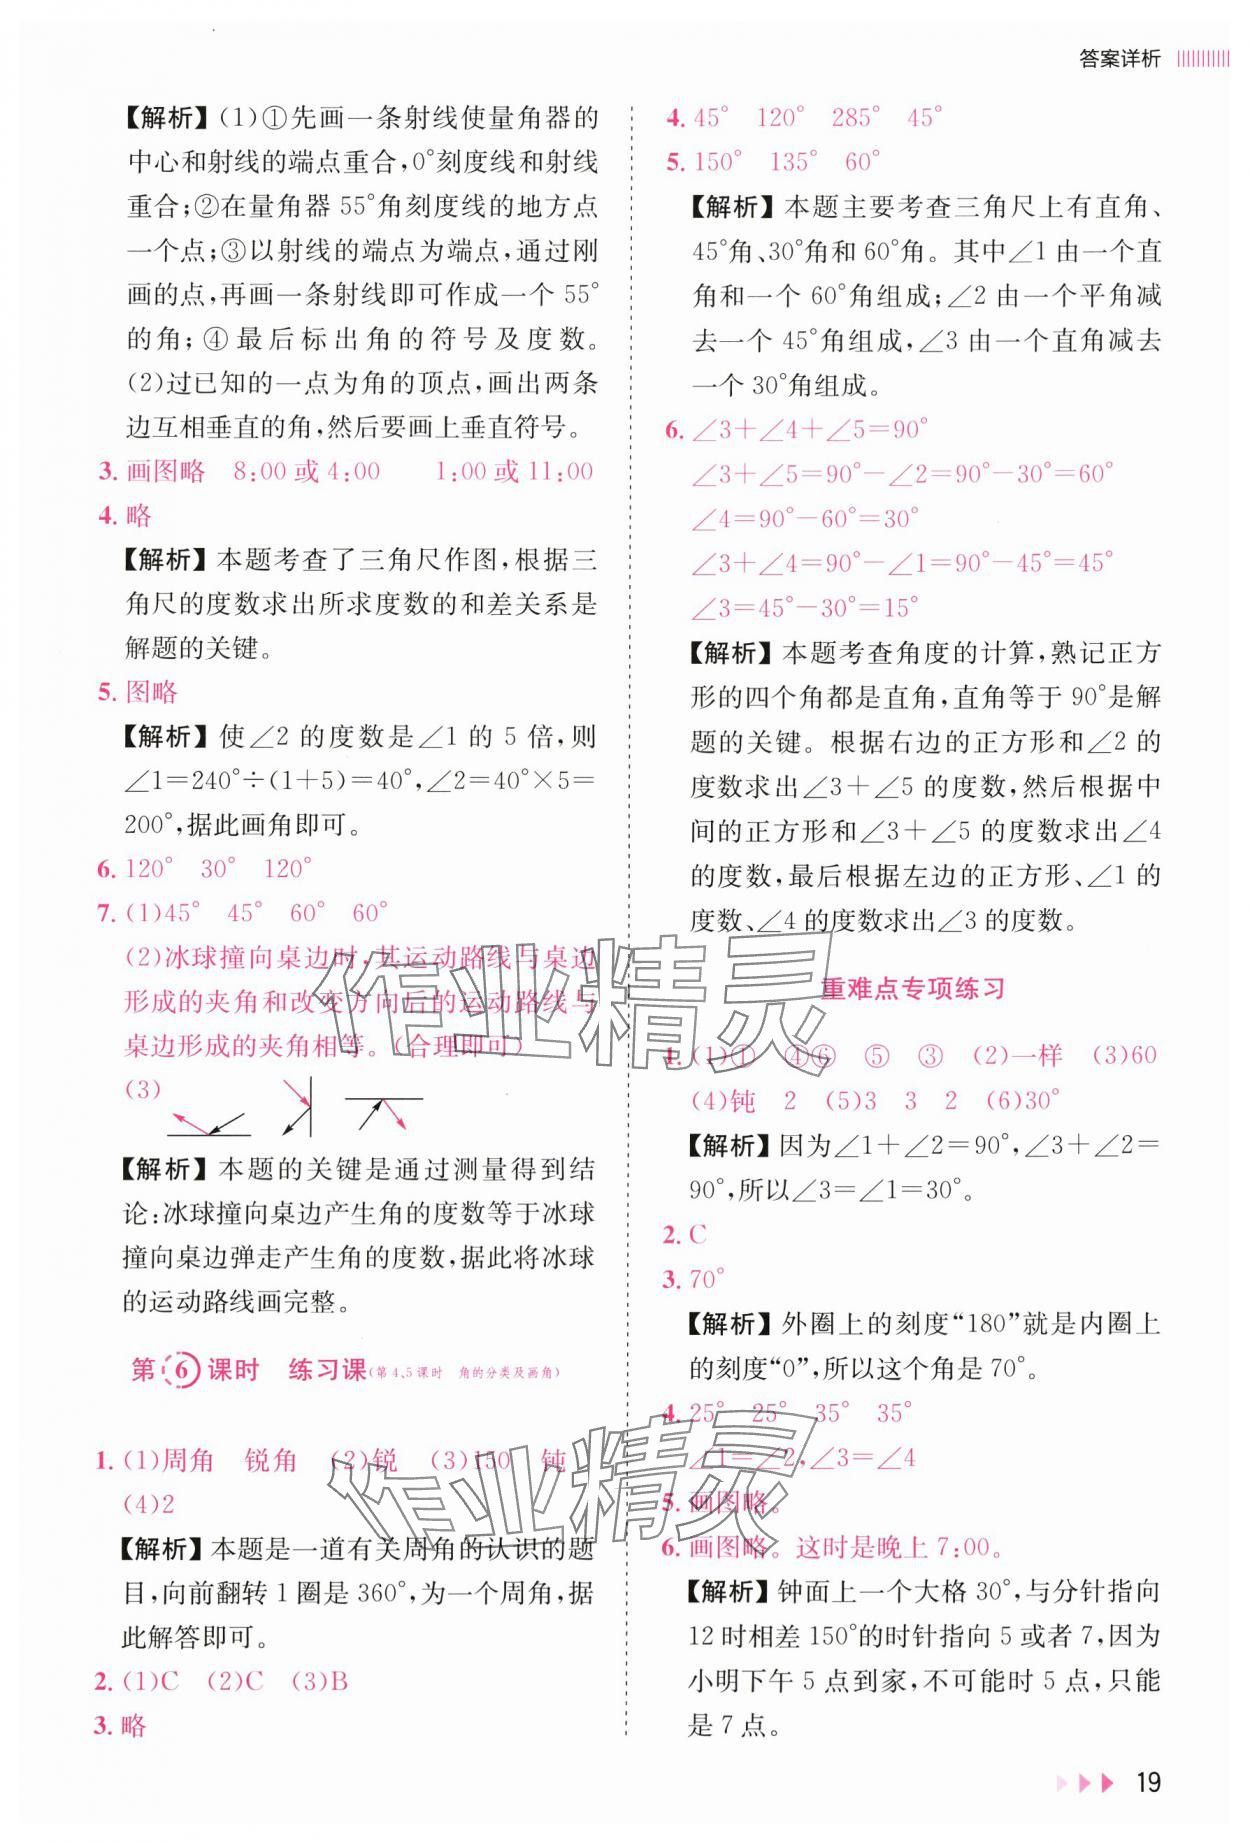 答案详析
【解析】(1)①先画一条射线使量角器的
中心和射线的端点重合,0°刻度线和射线
重合;②在量角器 55°角刻度线的地方点
一个点;③以射线的端点为端点,通过刚
画的点,再画一条射线即可作成一个 55°
的角;④最后标出角的符号及度数。
(2)过已知的一点为角的顶点,画出两条
边互相垂直的角,然后要画上垂直符号。
3. 画图略 8:00 或 4:00 1:00 或 11:00
4. 略
【解析】本题考查了三角尺作图,根据三
角尺的度数求出所求度数的和差关系是
解题的关键。
5. 图略
【解析】使∠2 的度数是∠1 的 5 倍,则
∠1=240°÷(1+5)=40°,∠2=40°×5=
200°,据此画角即可。
6. 120° 30° 120°
7. (1)45° 45° 60° 60°
(2)冰球撞向桌边时,其运动路线与桌边
形成的夹角和改变方向后的运动路线与
桌边形成的夹角相等。(合理即可)
(3)
【解析】本题的关键是通过测量得到结
论:冰球撞向桌边产生角的度数等于冰球
撞向桌边弹走产生角的度数,据此将冰球
的运动路线画完整。
第6课时 练习课(第 4、5 课时 角的分类及画角)
1. (1)周角 锐角 (2)锐 (3)150 钝
(4)2
【解析】本题是一道有关周角的认识的题
目,向前翻转 1 圈是 360°,为一个周角,据
此解答即可。
2. (1)C (2)C (3)B
3. 略
4. 45° 120° 285° 45°
5. 150° 135° 60°
【解析】本题主要考查三角尺上有直角、
45°角、30°角和 60°角。其中∠1 由一个直
角和一个 60°角组成;∠2 由一个平角减
去一个 45°角组成,∠3 由一个直角减去
一个 30°角组成。
6. ∠3+∠4+∠5=90°
∠3+∠5=90°-∠2=90°-30°=60°
∠4=90°-60°=30°
∠3+∠4=90°-∠1=90°-45°=45°
∠3=45°-30°=15°
【解析】本题考查角度的计算,熟记正方
形的四个角都是直角,直角等于 90°是解
题的关键。根据右边的正方形和∠2 的
度数求出∠3+∠5 的度数,然后根据中
间的正方形和∠3+∠5 的度数求出∠4
的度数,最后根据左边的正方形、∠1 的
度数、∠4 的度数求出∠3 的度数。
重难点专项练习
1. (1)① ④⑥ ⑤ ③ (2)一样 (3)60
(4)钝 2 (5)3 3 2 (6)30°
【解析】因为∠1+∠2=90°,∠3+∠2=
90°,所以∠3=∠1=30°。
2. C
3. 70°
【解析】外圈上的刻度“180”就是内圈上
的刻度“0”,所以这个角是 70°。
4. 25° 25° 35° 35°
∠1=∠2,∠3=∠4
5. 画图略。
6. 画图略。这时是晚上 7:00。
【解析】钟面上一个大格 30°,与分针指向
12 时相差 150°的时针指向 5 或者 7,因为
小明下午 5 点到家,不可能时 5 点,只能
是 7 点。
作业精灵
作业精灵
19